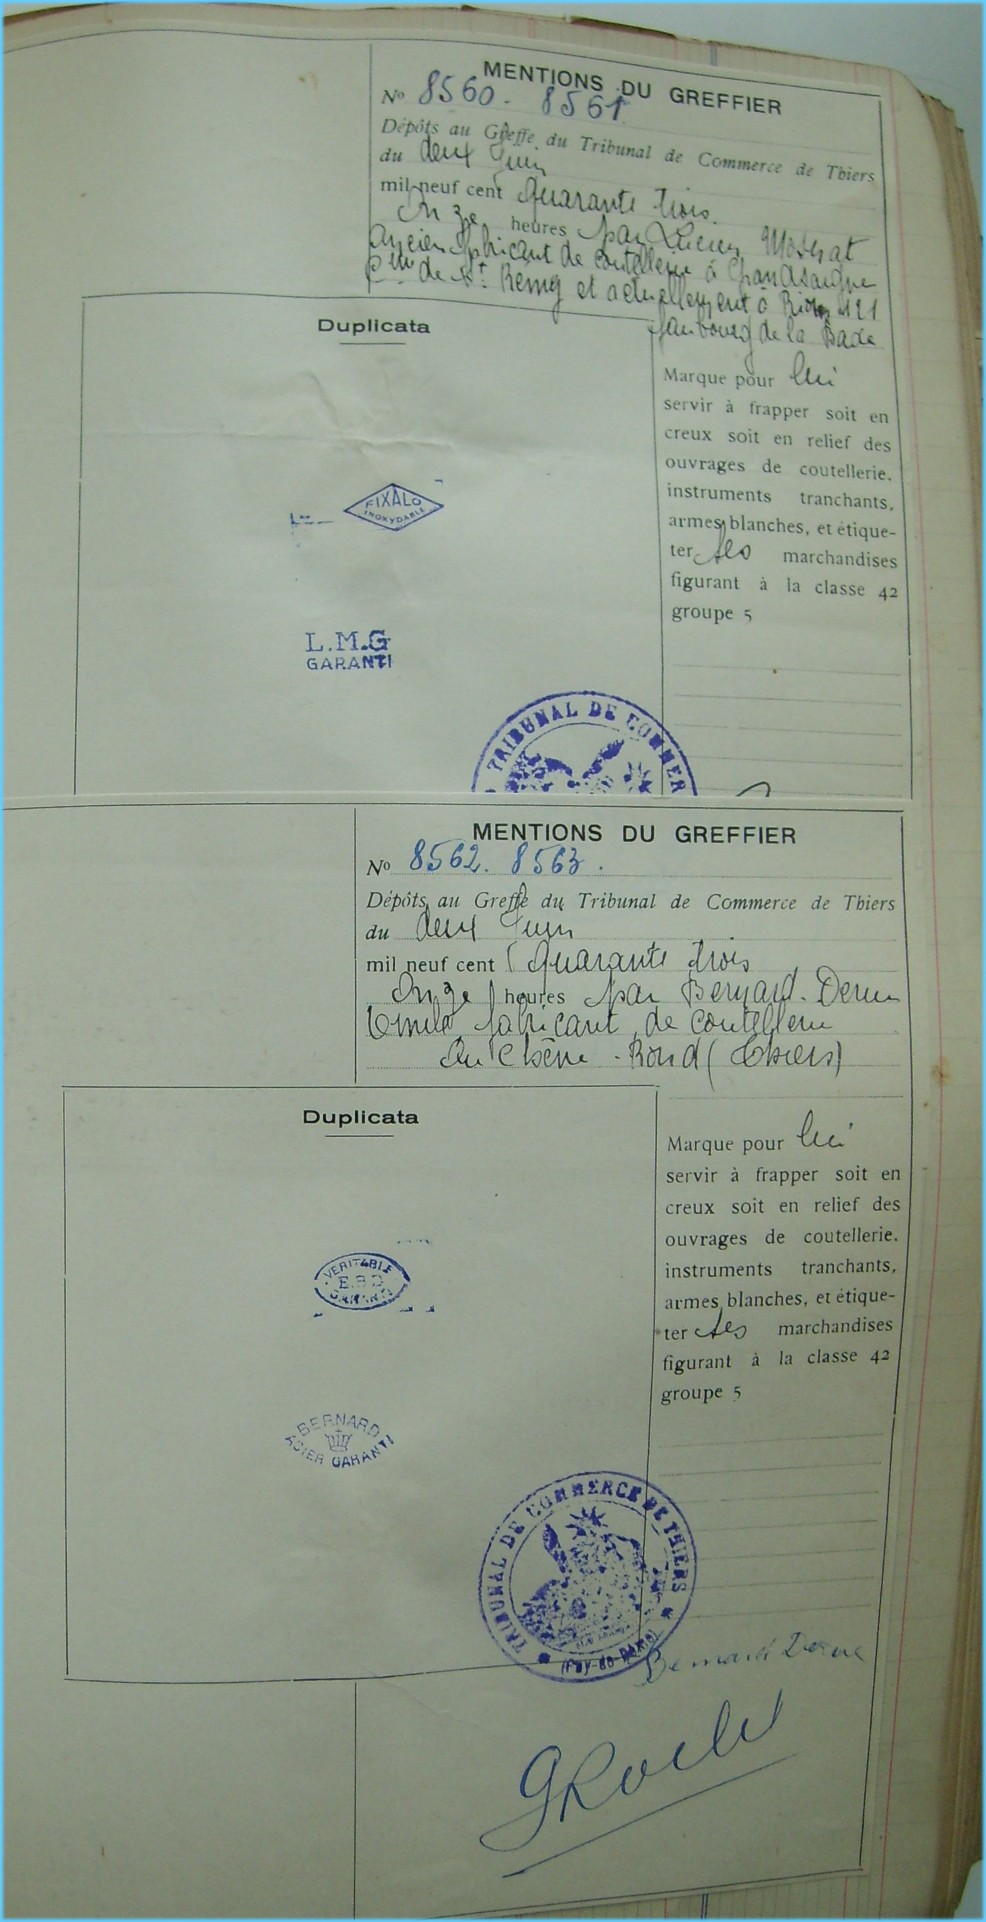 MENTIONS DU GREFFIER
No 8560. 8561
Dépôts au Greffe du Tribunal de Commerce de Thiers
du deux Juin
mil neuf cent quarante trois.
Onze heures par Lucien
Ancien fabricant de coutellerie à Chandsaigne
Cne de St. Remy et actuellement à Riom 121
faubourg de la Bade
Duplicata
Marque pour lui
servir à frapper soit en
creux soit en relief des
ouvrages de coutellerie,
instruments tranchants,
armes blanches, et étique-
ter ses marchandises
figurant à la classe 42
groupe 5
FIXALO
INOXYDABLE
L.M.G
GARANTI
TRIBUNAL DE COMMER
MENTIONS DU GREFFIER
No 8562. 8563.
Dépôts au Greffe du Tribunal de Commerce de Thiers
du deux Juin
mil neuf cent quarante trois
Onze heures par Bernard-Derne
Emile fabricant de coutellerie
Au Chêne-Rond (Thiers)
Duplicata
Marque pour lui
servir à frapper soit en
creux soit en relief des
ouvrages de coutellerie,
instruments tranchants,
armes blanches, et étique-
ter ses marchandises
figurant à la classe 42
groupe 5
VERITABLE
E.B.D
GARANTI
BERNARD
ACIER GARANTI
TRIBUNAL DE COMMERCE DE THIERS
(Puy-de-Dôme)
Bernard Derne